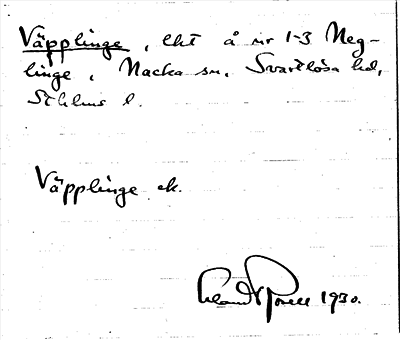 Väpplinge, lht å nr 1-3 Neg-
linge, Nacka sn, Svartlösa hd,
Sthlms l.
Väpplinge ek.
1930.